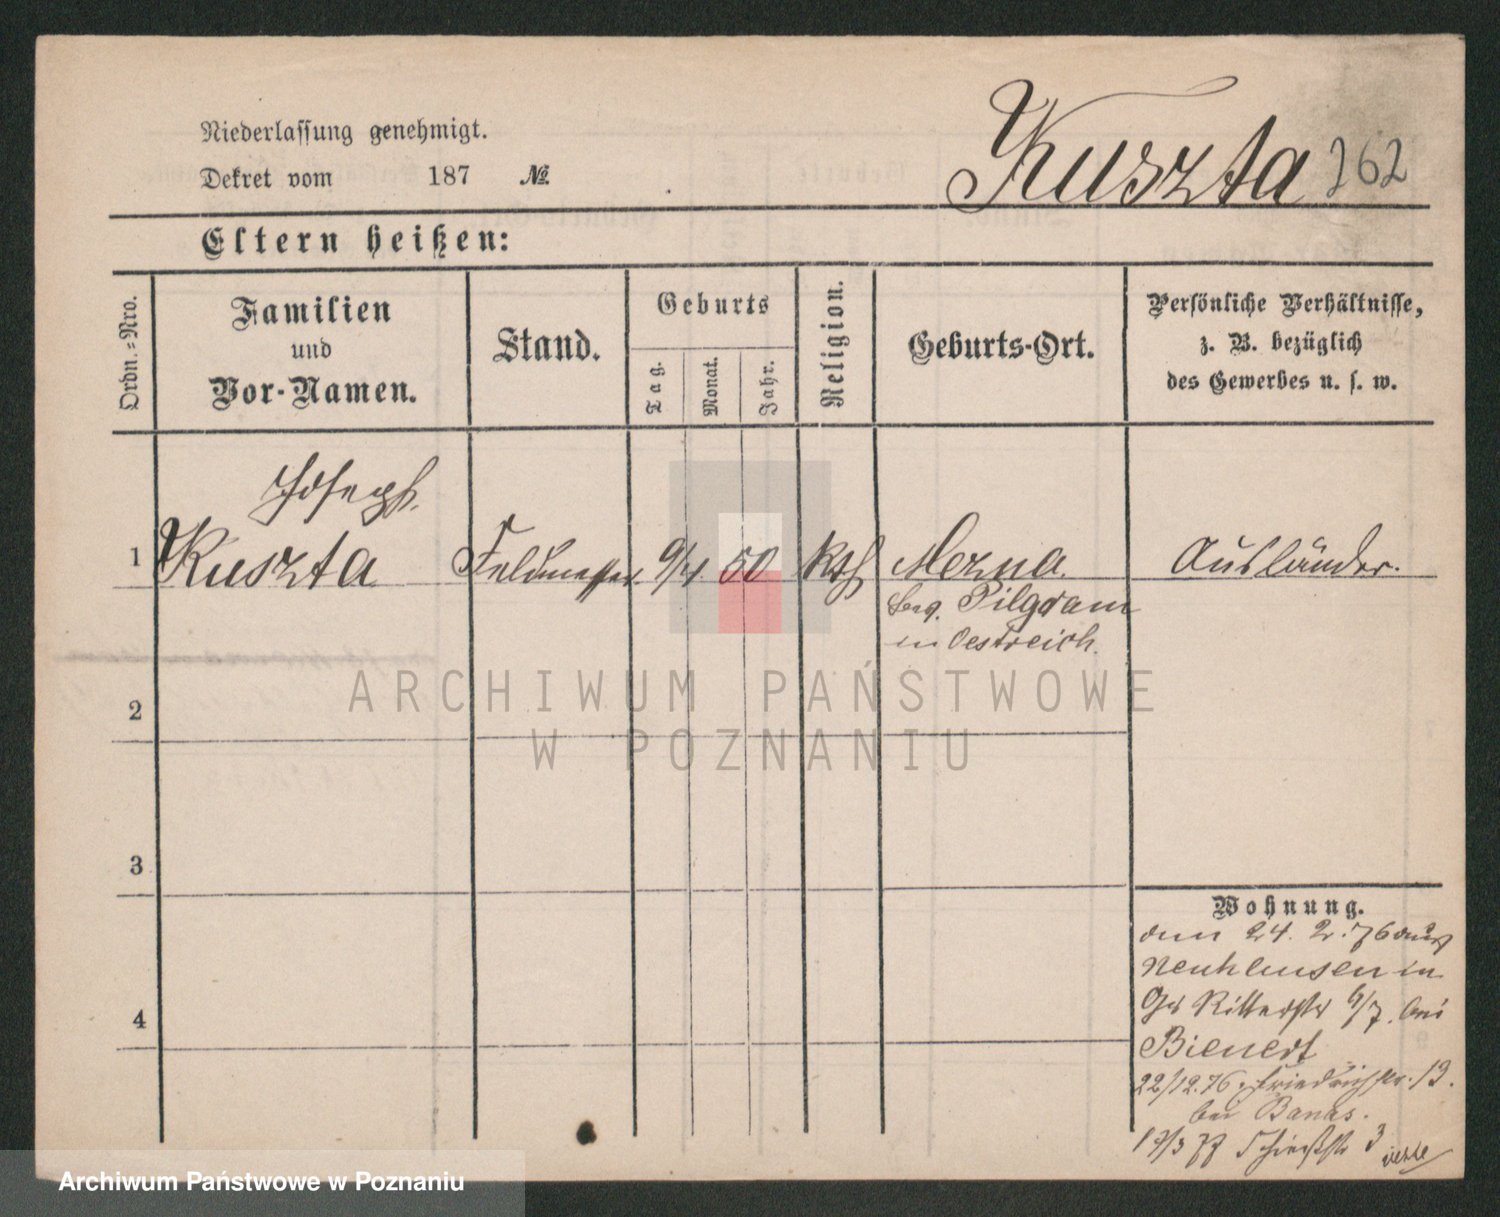 Kuszta 262
Niederlassung genehmigt.
Dekret vom 187 №
Eltern heißen:
Ordn.-Nro.
Familien
und
Vor-Namen.
Stand.
Geburts
Tag.
Monat.
Jahr.
Religion.
Geburts-Ort.
Persönliche Verhältnisse,
z. B. bezüglich
des Gewerbes u. s. w.
Joseph.
1 Kuszta Feldmesser 9/4 50 kth Mezna Ausländer.
bez. Pilgram
in Oestreich.
ARCHIWUM PAŃSTWOWE
W POZNANIU
2
3
4
Wohnung.
den 24. 2. 76 aus
in
Ritterstr 6/7. bei
Bienert
22/12.76. Friedrichstr. 13.
bei Banas.
17/3 77 3
Archiwum Państwowe w Poznaniu